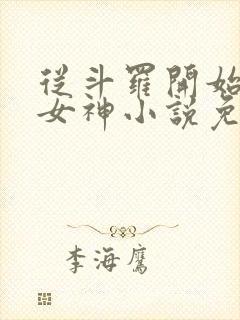 從斗羅開始
女神小說免
李海鷹